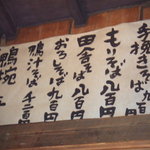 手挽きそば 九百円
もりそば 八百円
田舎そば 八百円
おろしそば 九百円
鴨汁そば 千二百円
鴨